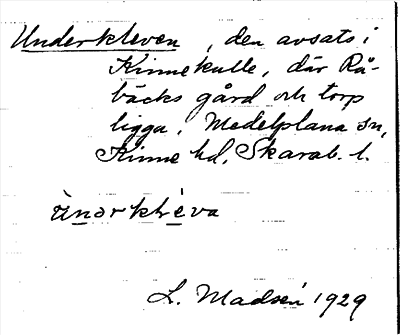 Underkleven, den avsats i
Kinnekulle, där Rå-
bäcks gård och torp
ligga, Medelplana sn,
Kinne hd, Skarab. l.
ùnərkléva
L. Madsén 1929